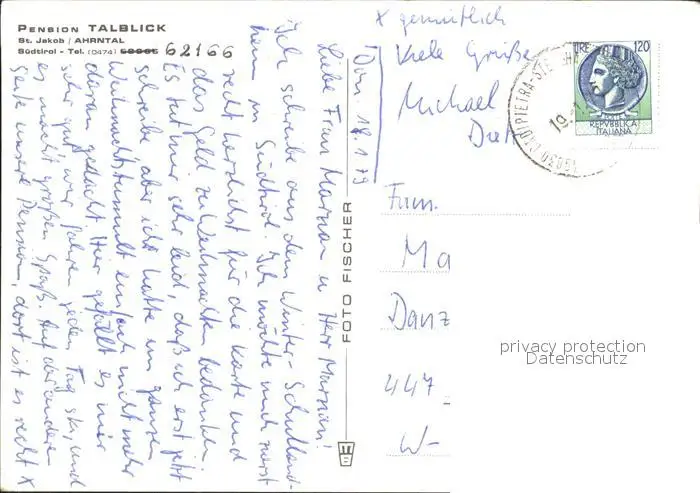 PENSION TALBLICK
St. Jakob / AHRNTAL
Südtirol - Tel. (0474) 62166
Don. 18.1.79
Liebe Frau Marzian u Herr Marzian!
Ich schreibe aus dem Winter-Schulland-
heim in Südtirol. Ich möchte mich zuerst
recht herzlichst für die Karte und
das Geld zu Weihnachten bedanken.
Es tut mir sehr leid, daß ich erst jetzt
schreibe aber ich hatte im ganzen
Weihnachtstrummel einfach nicht mehr
daran gedacht. Hier gefällt es mir
sehr gut, wir fahren jeden Tag ski, und
es macht großen Spaß. Auf der anderen
Seite unsere Pension, dort ist es recht x
x gemütlich
Viele Grüße
Michael
FOTO FISCHER
LIRE 120
REPVBBLICA
ITALIANA
Fam.
Ma
Danz
447
W-
privacy protection
Datenschutz